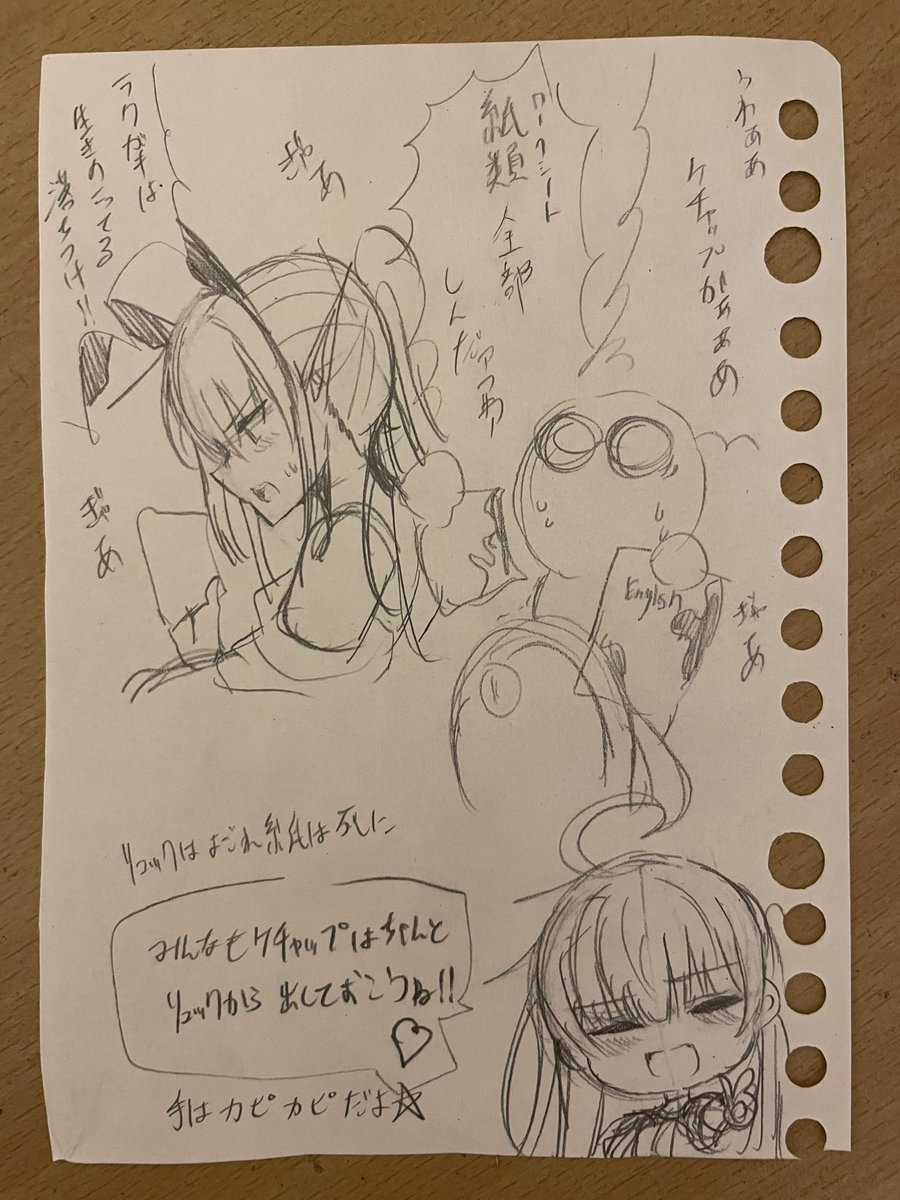 うわぁぁ
ケチャップがぁぁぁ
ワークシート
紙類
全部
しんだァァァ
ぎゃあ
ラクガキは
生きのこってる
落ちつけ!!
ぎゃあ
English
ぎゃあ
リュックはよごれ紙は死に
みんなもケチャップはちゃんと
リュックから出しておこうね!!
手はカピカピだよ☆